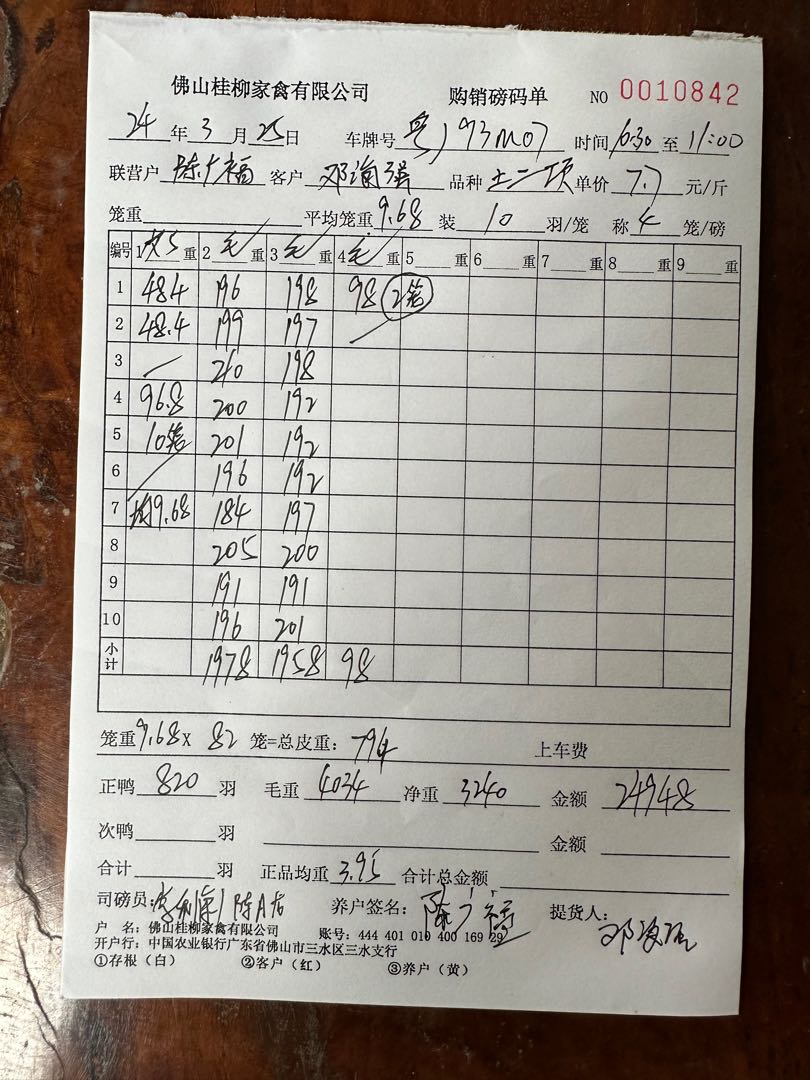 佛山桂柳家禽有限公司 购销磅码单 NO 0010842
24 年 3 月 25 日 车牌号 粤J 93M07 时间 6:30 至 11:00
联营户 陈广福 客户 邓 强 品种 土二项 单价 7.7 元/斤
笼重 平均笼重 9.68 装 10 羽/笼 称 4 笼/磅
编号 1 重 2 毛 重 3 毛 重 4 毛 重 5 重 6 重 7 重 8 重 9 重
1 48.4 196 198 98 2笼
2 48.4 199 197
3 210 198
4 96.8 200 192
5 10笼 201 192
6 196 192
7 均9.68 184 197
8 205 200
9 191 191
10 196 201
小计 1978 1958 98
笼重 9.68 X 82 笼=总皮重: 794 上车费
正鸭 820 羽 毛重 4034 净重 3240 金额 24948
次鸭 羽 金额
合计 羽 正品均重 3.95 合计总金额
司磅员: 养户签名: 陈广福 提货人: 邓 强
户 名: 佛山桂柳家禽有限公司 账号: 444 401 010 400 169 29
开户行: 中国农业银行广东省佛山市三水区三水支行
①存根(白) ②客户(红) ③养户(黄)